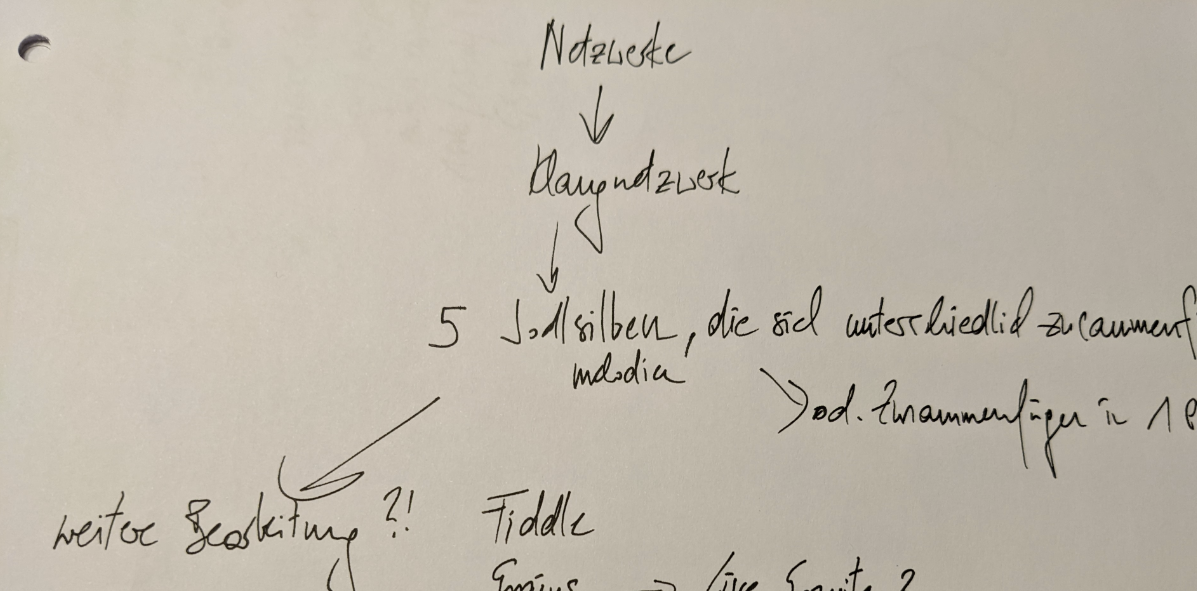 Netzwerke
↓
Klangnetzwerk
↓
5 Jodlsilben, die sich unterschiedlich zusammenf
melodien
od. Zusammenfügen in 1
weitere Bearbeitung ?! Fiddle
→ Live